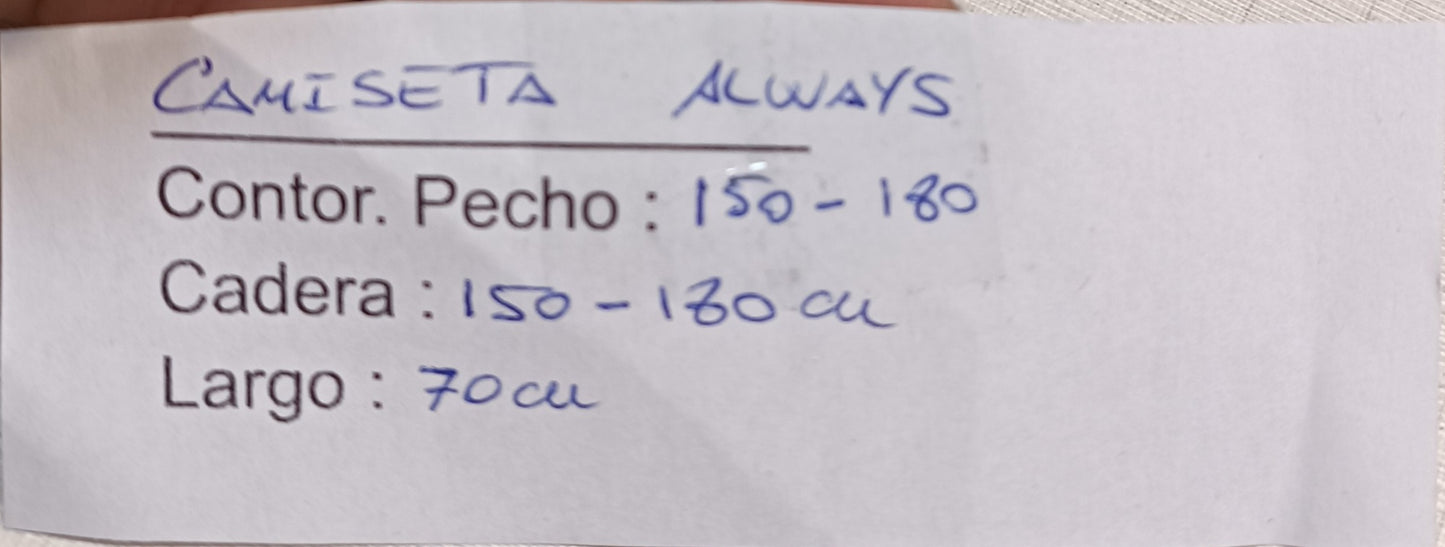 CAMISETA ALWAYS
Contor. Pecho : 150 - 180
Cadera : 150 - 180 cm
Largo : 70 cm